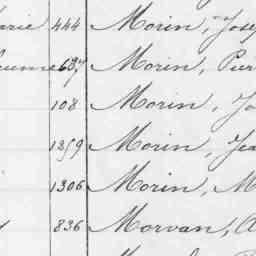 arie 444 Morin, Jose
637 Morin, Pier
108 Morin, Jo
1259 Morin, Jea
1306 Morin, M
836 Morvan, A